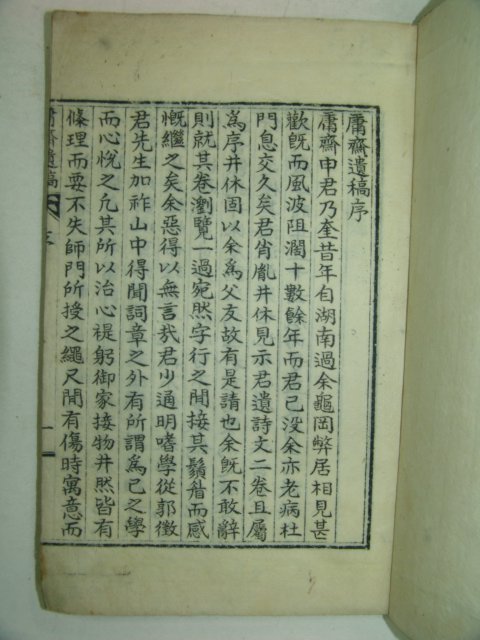 庸齋遺稿序
庸齋申君乃奎昔年自湖南過余龜岡弊居相見甚
歡旣而風波阻濶十數餘年而君已没余亦老病杜
門息交久矣君肖胤井休見示君遺詩文二卷且屬
爲序井休固以余爲父友故有是請也余旣不敢辭
則就其卷瀏覽一過宛然字行之間接其鬚眉而感
慨繼之矣余惡得以無言哉君少通明嗜學從郭徵
君先生加祚山中得聞詞章之外有所謂爲己之學
而心悅之凡其所以治心禔躬御家接物井然皆有
條理而要不失師門所授之繩尺閒有傷時寓意而
庸齋遺稿
序
一